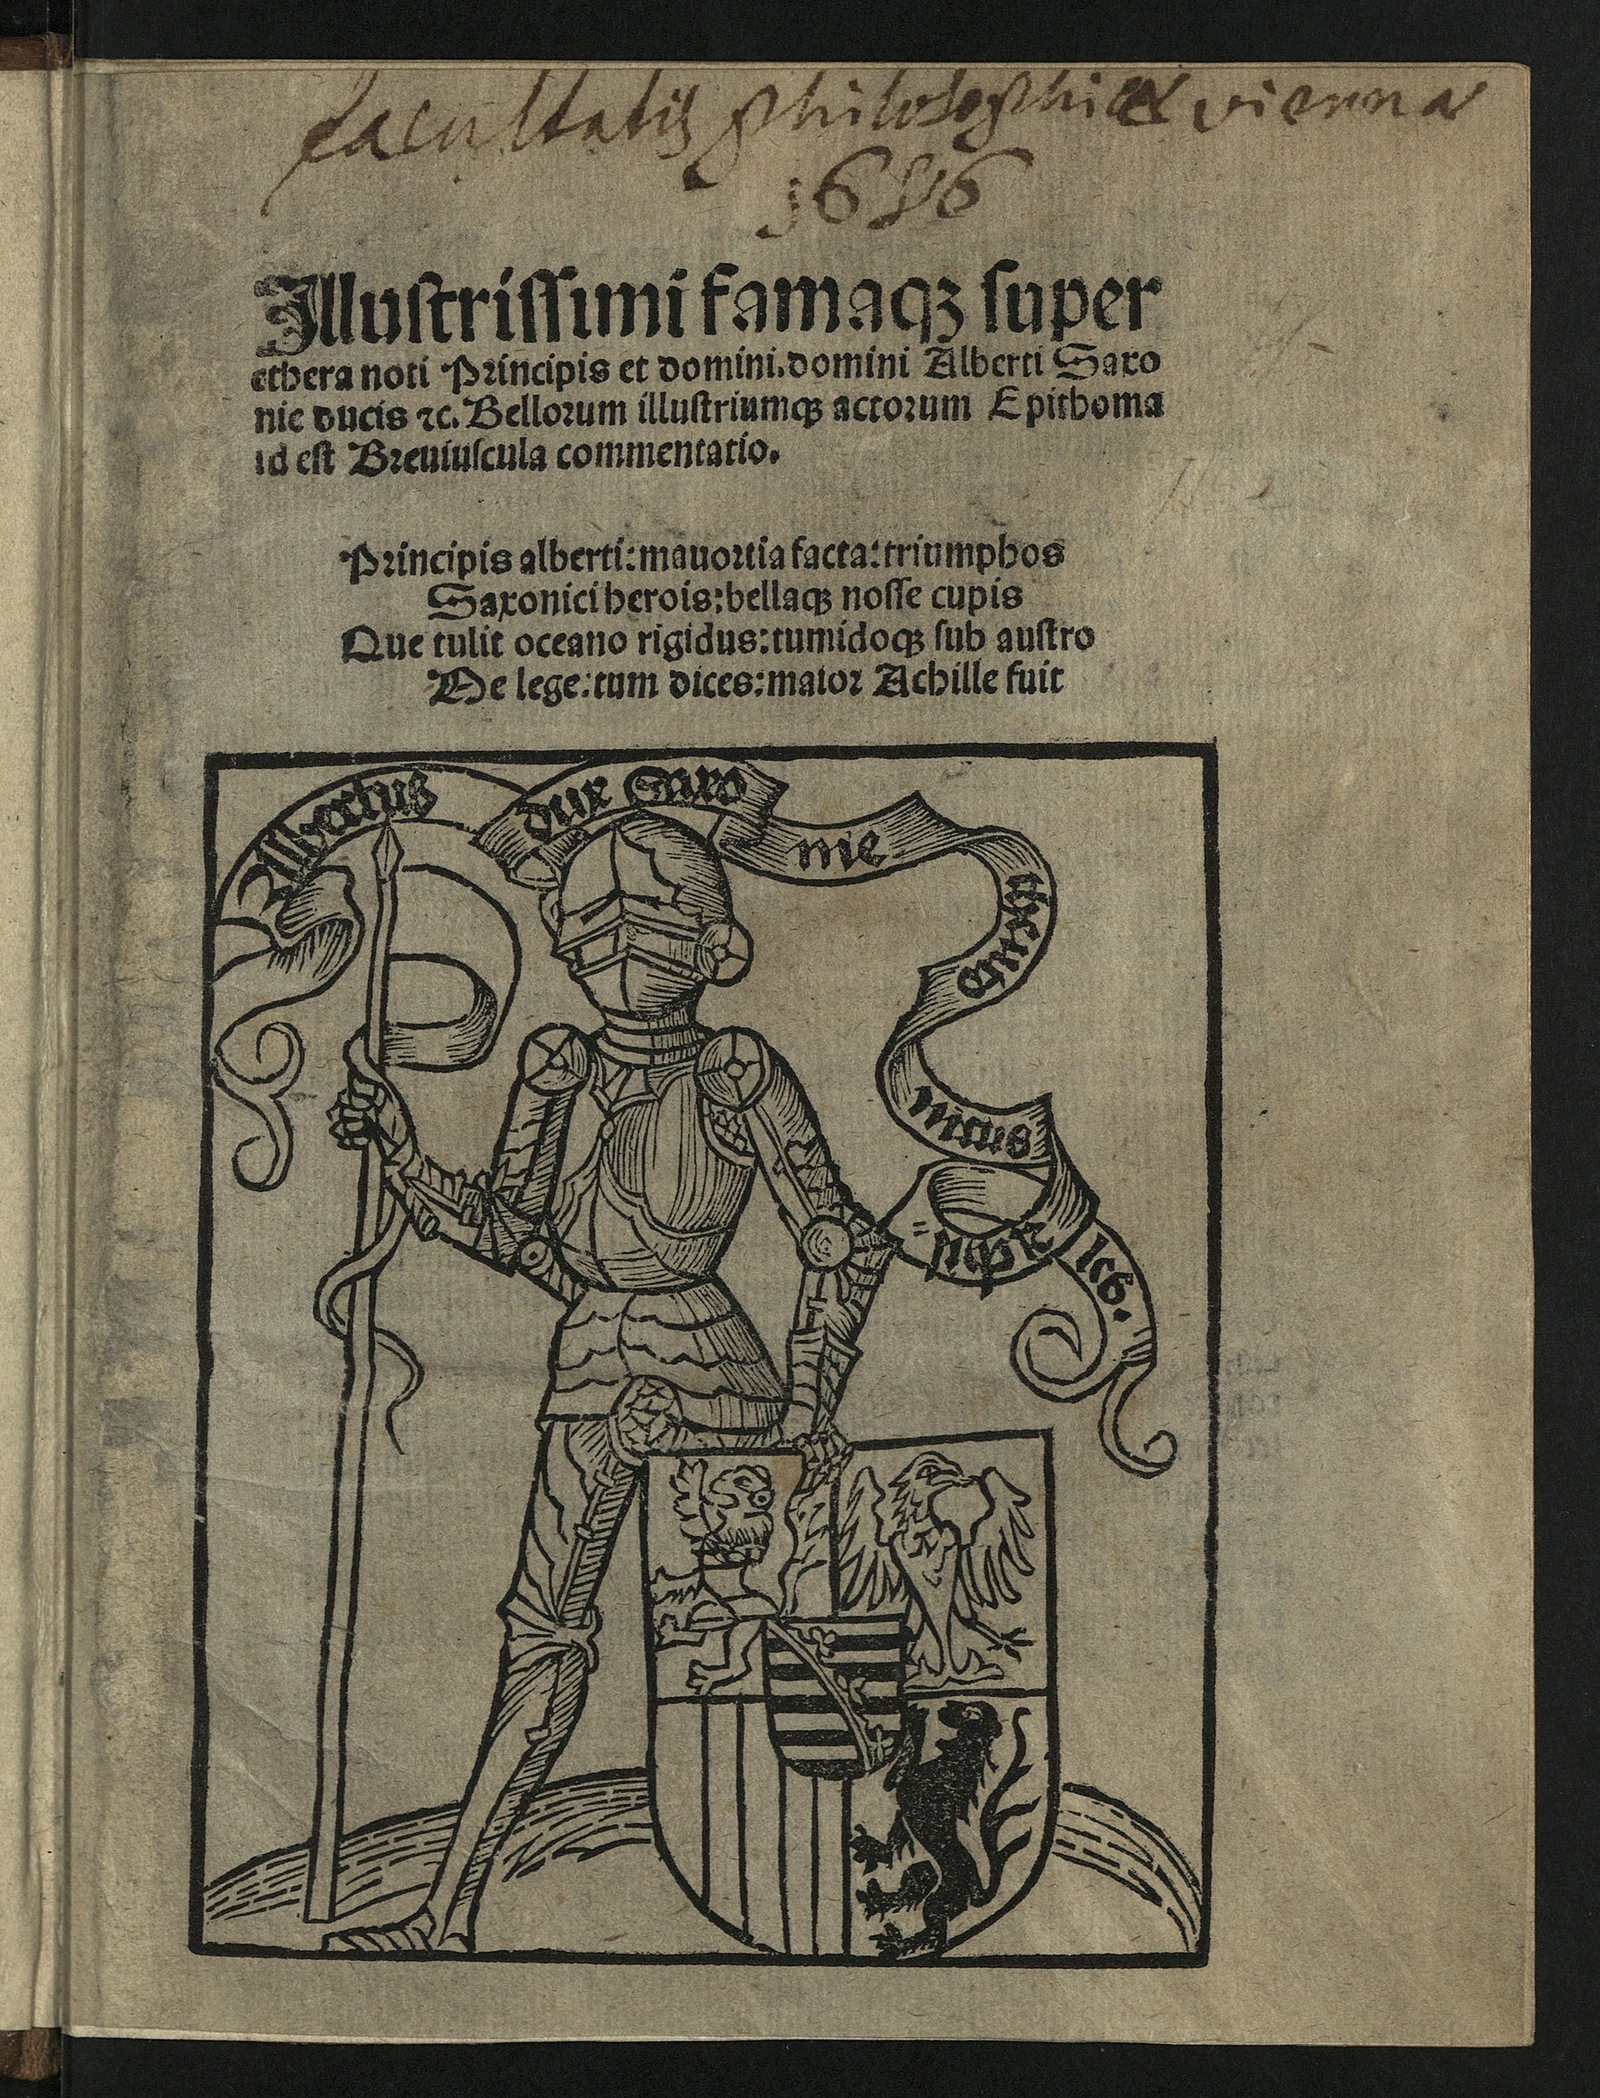 facultatis philosophicæ vienna
1656
Illustrissimi famaqꝫ super
ethera noti Principis et domini. domini Alberti Saxo
nie ducis ⁊c. Bellorum illustriumqꝫ actorum Epithoma
id est Breuiuscula commentatio.
Principis alberti: mauortia facta: triumphos
Saxonici herois: bellaqꝫ nosse cupis
Que tulit oceano rigidus: tumidoqꝫ sub austro
Me lege: tum dices: maior Achille fuit
Albertus
dux Saxo
nie
nicus